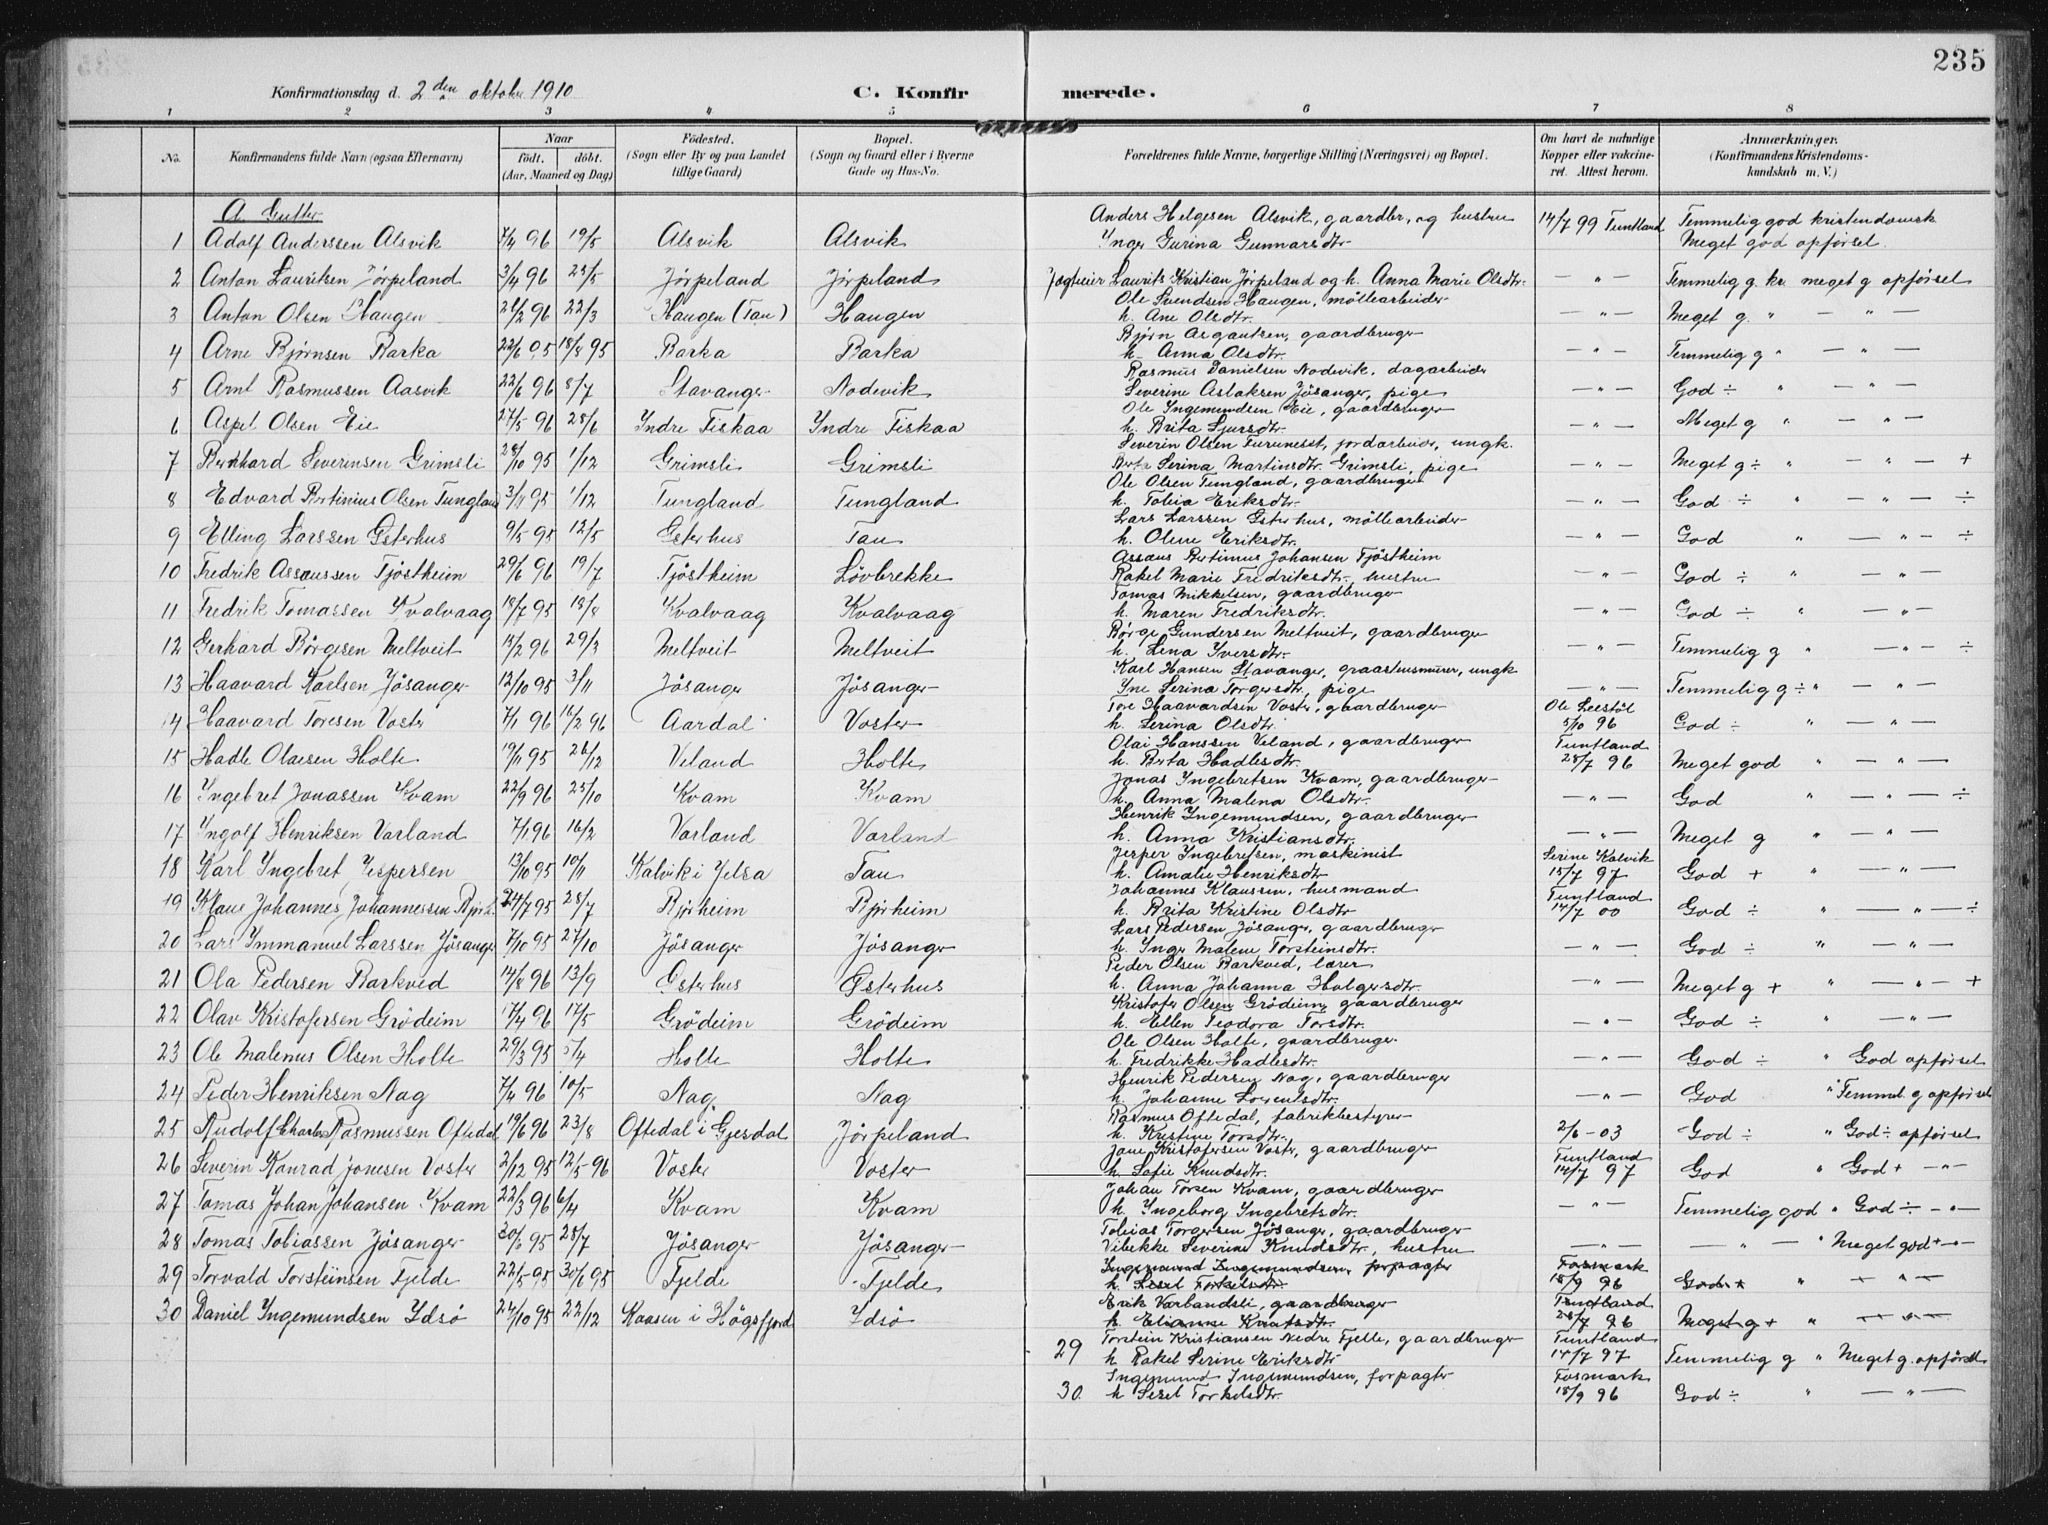 235
Konfirmationsdag d. 2den oktober 1910
C. Konfirmerede.
1 2 3 4 5 6 7 8
No. Konfirmandens fulde Navn (ogsaa Efternavn) Naar født. døbt. (Aar, Maaned og Dag) Fødested. (Sogn eller By og paa Landet tillige Gaard) Bopæl. (Sogn og Gaard eller i Byerne Gade og Hus-No. Forældrenes fulde Navne, borgerlige Stilling (Næringsvei) og Bopæl. Om havt de naturlige Kopper eller vakcineret. Attest herom. Anmærkninger. (Konfirmandens Kristendomskundskab m. V.)
A. Gutter
1 Adolf Anderssen Alsvik 7/4 96 19/5 Alsvik Alsvik Anders Helgesen Alsvik, gaardbr, og hustru Inger Gurina Gunnarsdtr 14/7 99 Tuntland Temmelig god kristendomsk Meget god opførsel
2 Anton Lauritsen Jörpeland 3/4 96 25/5 Jörpeland Jörpeland Lauritz Kristian Jörpeland og h. Anna Marie Olsdtr. — " — Temmelig g. kr. meget g opførsel
3 Anton Olsen Haugen 21/2 96 22/3 Haugen (Tau) Haugen Ole Svendsen Haugen, möllearbeider h. Ane Olsdtr. — " — Meget g. " — " —
4 Arne Bjørnsen Barka 22/6 95 18/8 95 Barka Barka Bjørn Asgautsen, gaardbruger h. Anna Olsdtr. — " — Temmelig g " — " —
5 Arnt Rasmussen Aasvik 22/6 96 8/7 Stavanger Nodevik Rasmus Danielsen Nodevik, dagarbeider Severine Aslaksen Jösanger, pige — " — God ÷ " — " —
6 Aspel Olsen Eie 27/5 96 28/6 Yndre Fiskaa Yndre Fiskaa Ole Ingemundsen Eie, gaardbruger h. Brita Sjursdtr. — " — Meget g " — " —
7 Bernhard Severinsen Grimsli 28/10 95 1/12 Grimsli Grimsli Severin Olsen Furuneset, jordarbeider, ungk. Berta Serina Martinsdtr. Grimsli, pige — " — Meget g ÷ " — " — +
8 Edvard Bertinius Olsen Tungland 3/11 95 1/12 Tungland Tungland Ole Olsen Tungland, gaardbruger h. Tobia Eriksdtr. — " — God ÷ " — " — ÷
9 Elling Larssen Østerhus 9/5 95 12/5 Østerhus Tau Lars Larssen Østerhus, möllearbeider h. Oline Eriksdtr. — " — God " — " — ÷
10 Fredrik Assaussen Tjöstheim 29/6 96 19/7 Tjöstheim Lövbrekke Assaus Bertinius Johansen Tjöstheim Rakel Marie Fredriksdtr. hustru — " — God ÷ " — " —
11 Fredrik Tomassen Kvalvaag 18/7 95 18/8 Kvalvaag Kvalvaag Tomas Mikkelsen, gaardbruger h. Maren Fredriksdtr. — " — God ÷ " — " —
12 Gerhard Börgesen Meltveit 15/2 96 29/3 Meltveit Meltveit Börge Gundersen Meltveit, gaardbruger h. Lena Iversdtr. — " — Temmelig g " — " — ÷
13 Haavard Karlsen Jösanger 12/10 95 3/11 Jösanger Jösanger Karl Hansen Stavanger, graastensmurer, ungk Ine Serina Torgersdtr, pige — " — Temmelig g ÷ " — " —
14 Haavard Toresen Voster 7/1 96 16/2 96 Aardal Voster Tore Haavardsen Voster, gaardbruger h. Serina Olsdtr. 5/10 96 God ÷ " — " —
15 Hadle Olaesen Holte 19/11 95 26/12 Veland Holte Olai Hanssen Veland, gaardbruger h. Berta Hadlesdtr. Tuntland 28/7 96 Meget god " — " —
16 Ingebret Jonassen Kvam 22/9 96 25/10 Kvam Kvam Jonas Ingebretsen Kvam, gaardbruger h. Anna Malena Olsdtr. — " — God " — " — ÷
17 Ingolf Henriksen Varland 7/1 96 16/2 Varland Varland Henrik Ingemundsen, gaardbruger h. Anna Kristiansdtr. — " — Meget g " — " —
18 Karl Ingebret Jespersen 13/10 95 10/11 Kalvik i Jelsa Tau Jesper Ingebretsen, maskinist h. Amalie Henriksdtr Serine Kalvik 15/7 97 God + " — " —
19 Klaus Johannes Johannessen Bjørh. 24/7 95 28/7 Bjørheim Bjørheim Johannes Klaussen, husmand h. Brita Kristine Olsdtr Tuntland 14/7 00 God ÷ " — " — ÷
20 Lars Immanuel Larssen Jösanger 7/10 95 27/10 Jösanger Jösanger Lars Pedersen Jösanger, gaardbruger h. Inger Malene Torsteinsdtr. — " — God ÷ " — " —
21 Ola Pedersen Barkved 14/8 96 13/9 Østerhus Østerhus Peder Olsen Barkved, lærer h. Anna Johanna Holgersdtr. — " — Meget g + " — " — +
22 Olav Kristofersen Grödeim 17/4 96 17/5 Grödeim Grödeim Kristofer Olsen Grödeim, gaardbruger h. Ellen Teodora Torsdtr. — " — God ÷ " — " —
23 Ole Malenus Olsen Holte 29/3 95 5/4 Holte Holte Ole Olsen Holte, gaardbruger h. Fredrikke Hadlesdtr. — " — God ÷ " God opførsel
24 Peder Henriksen Nag 7/4 96 10/5 Nag Nag Henrik Pedersen Nag, gaardbruger h. Johanne Lorentsdtr. — " — God " Temmel. g opførsel
25 Rudolf Charles Rasmussen Oftedal 19/6 96 23/8 Oftedal i Gjesdal Jörpeland Rasmus Oftedal, fabrikbestyrer h. Kristine Torsdtr. 2/6-03 God ÷ " God ÷ opførsel
26 Severin Konrad Jonesen Voster 2/12 95 12/5 96 Voster Voster Jone Kristofersen Voster, gaardbruger h. Sofie Knudsdtr. Tuntland 14/7 97 God " God + — " —
27 Tomas Johan Johansen Kvam 22/3 96 6/4 Kvam Kvam Johan Torsen Kvam, gaardbruger h. Ingeborg Ingebretsdtr. — " — Temmelig god " God ÷ — " —
28 Tomas Tobiassen Jösanger 30/6 95 28/7 Jösanger Jösanger Tobias Torgersen Jösanger, gaardbruger Vibekke Severine Knudsdtr, hustru — " — — " — " Meget god + — " —
29 Torvald Torsteinsen Fjelde 22/5 95 30/6 95 Fjelde Fjelde Ingemund Ingemundsen, forpagter h. Sesel Torkelsdtr. Fosmark 18/9 96 God + " — " —
30 Daniel Ingemundsen Idsö 24/10 95 22/12 Kaasen i Högsfjord Idsö Erik Varlandsli, gaardbruger h. Elianne Knutsdtr. Tuntland 28/7 96 Meget g + " — " —
29 Torstein Kristiansen Nedre Fjelle, gaardbruger h Rakel Serine Eriksdtr Tuntland 14/7 97 Temmelig g " Meget g. opførsel
30. Ingemund Ingemundsen, forpagter h Sesel Torkelsdtr. Fosmark 18/9 96 God ÷ " — " —